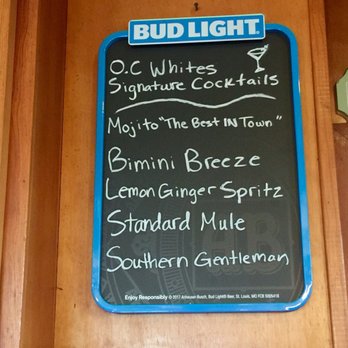 BUD LIGHT
O.C Whites
Signature Cocktails
Mojito "The Best IN Town"
Bimini Breeze
Lemon Ginger Spritz
Standard Mule
Southern Gentleman
Enjoy Responsibly © 2017 Anheuser-Busch, Bud Light® Beer, St. Louis, MO